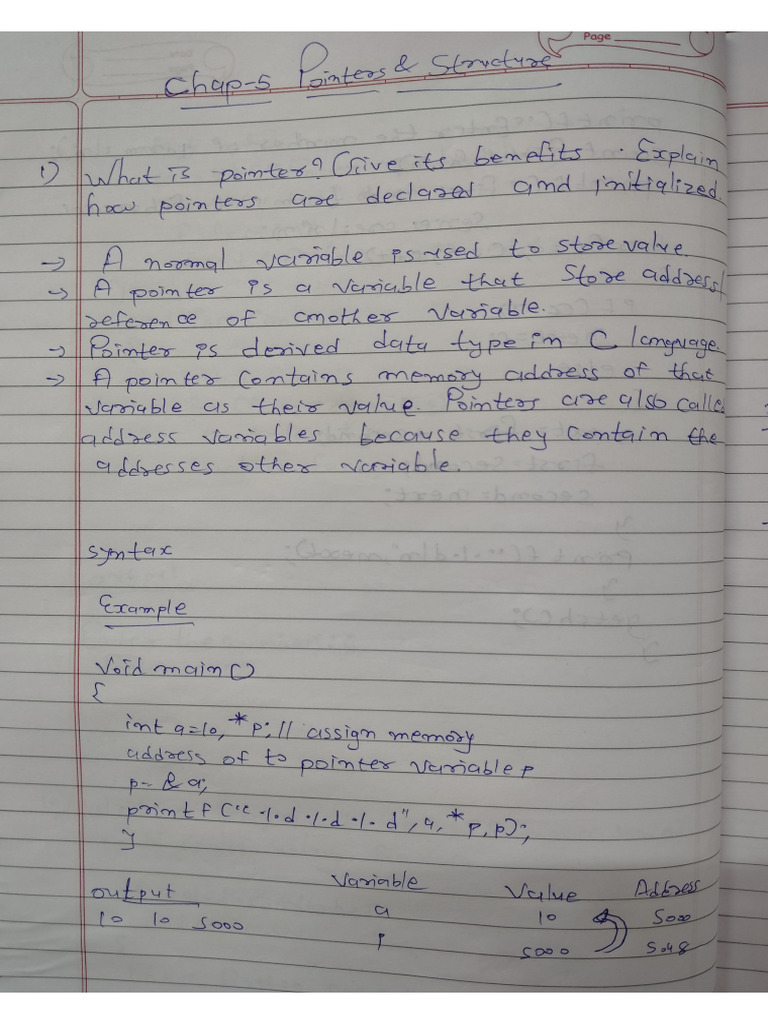 Page
Chap-5 Pointers & Structure
1) What is pointer? Give its benefits. Explain
how pointers are declared and initialized.
→ A normal variable is used to store value.
→ A pointer is a variable that store address/
reference of another variable.
→ Pointer is derived data type in C language.
→ A pointer contains memory address of that
variable as their value. Pointers are also calle
address variables because they contain the
addresses other variable.
syntax
Example
void main()
{
int a=10, *p; // assign memory
address of to pointer variable p
p= &a;
printf("%d %d %d", a, *p, p);
}
output Variable Value Address
10 10 5000 a 10 5000
p 5000 5048